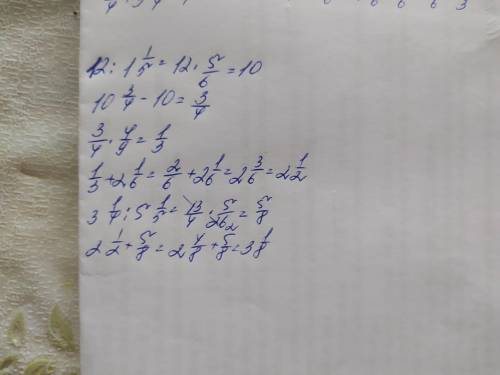 12 : 1 1/5 = 12 · 5/6 = 10
10 3/4 - 10 = 3/4
3/4 · 4/9 = 1/3
1/3 + 2 1/6 = 2/6 + 2 1/6 = 2 3/6 = 2 1/2
3 1/4 : 5 1/5 = 13/4 · 5/26 2 = 5/8
2 1/2 + 5/8 = 2 4/8 + 5/8 = 3 1/8